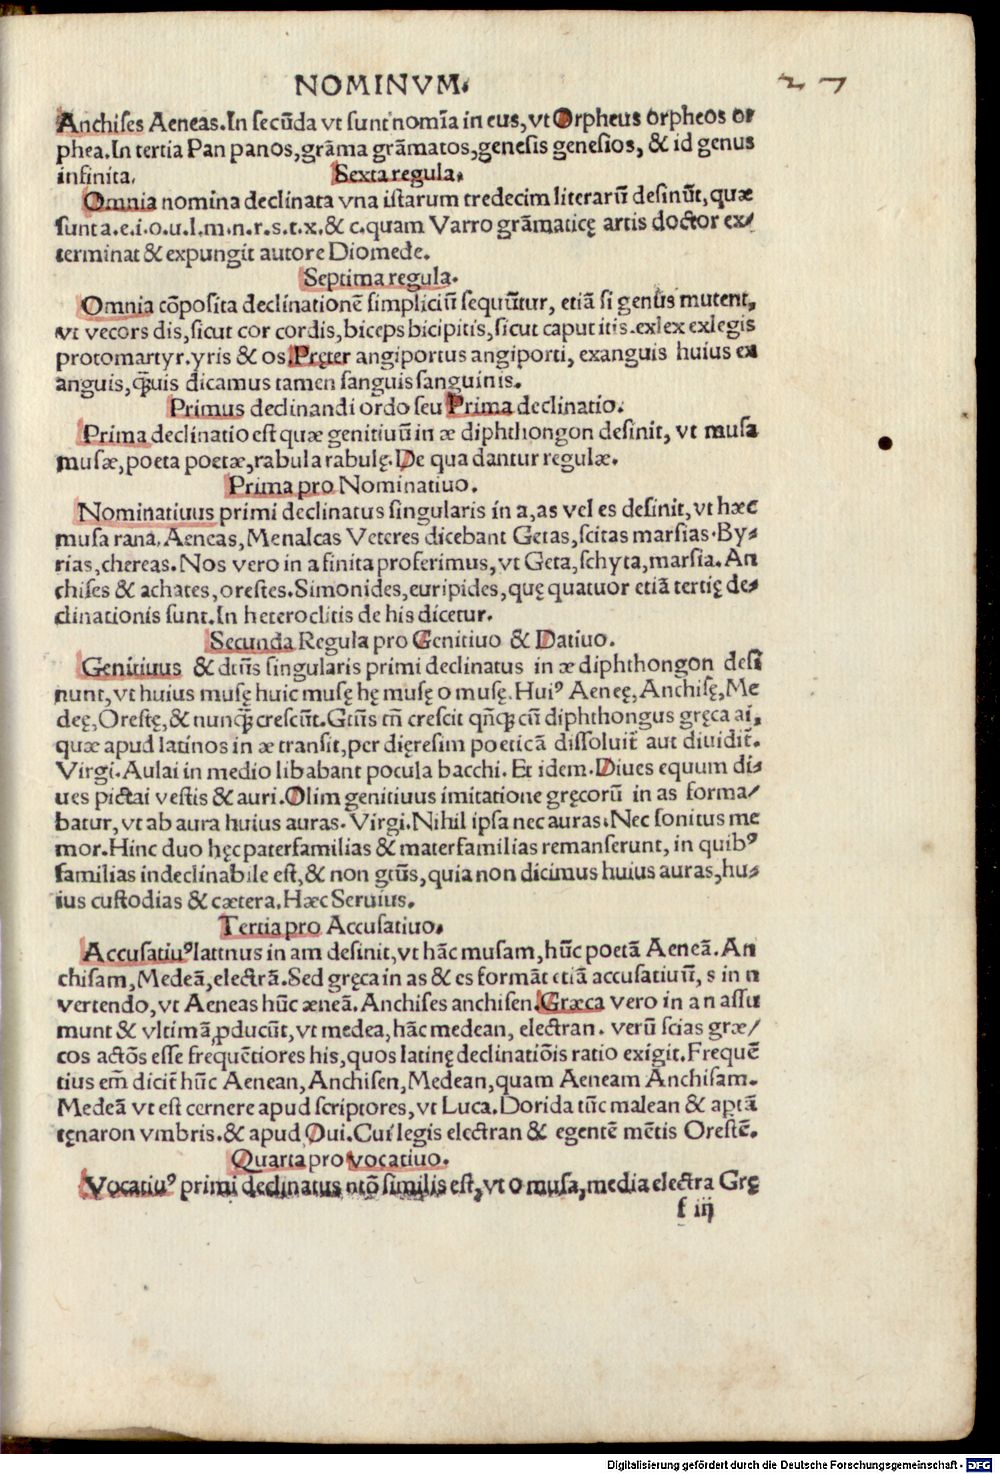 NOMINVM. 27
Anchises Aeneas. In secūda vt sunt nomīa in eus, vt Orpheus orpheos or
phea. In tertia Pan panos, grāma grāmatos, genesis genesios, & id genus
infinita. Sexta regula.
Omnia nomina declinata vna istarum tredecim literarū desinūt, quæ
sunt a.e.i.o.u.l.m.n.r.s.t.x.& c. quam Varro grāmaticę artis doctor ex/
terminat & expungit autore Diomede.
Septima regula.
Omnia cōposita declinationē simpliciū sequūtur, etiā si genus mutent,
vt vecors dis, sicut cor cordis, biceps bicipitis, sicut caput itis. exlex exlegis
protomartyr. yris & os. Pręter angiportus angiporti, exanguis huius ex
anguis, q̄uis dicamus tamen sanguis sanguinis.
Primus declinandi ordo seu Prima declinatio.
Prima declinatio est quæ genitiuū in æ diphthongon desinit, vt musa
musæ, poeta poetæ, rabula rabulę. De qua dantur regulæ.
Prima pro Nominatiuo.
Nominatiuus primi declinatus singularis in a, as vel es desinit, vt hæc
musa rana, Aeneas, Menalcas Veteres dicebant Getas, scitas marsias. By/
rias, chereas. Nos vero in a finita proferimus, vt Geta, schyta, marsia. An
chises & achates, orestes. Simonides, euripides, quę quatuor etiā tertię de/
clinationis sunt. In heteroclitis de his dicetur.
Secunda Regula pro Genitiuo & Datiuo.
Genitiuus & dtūs singularis primi declinatus in æ diphthongon desi
nunt, vt huius musę huic musę hę musę o musę. Huiꝰ Aeneę, Anchisę, Me
deę, Orestę, & nunq̄ crescūt. Gtūs tn̄ crescit qn̄q̄ cū diphthongus gręca ai,
quæ apud latinos in æ transit, per dięresim poeticā dissoluit̄ aut diuidit̄.
Virgi. Aulai in medio libabant pocula bacchi. Et idem. Diues equum di/
ues pictai vestis & auri. Olim genitiuus imitatione gręcorū in as forma/
batur, vt ab aura huius auras. Virgi. Nihil ipsa nec auras. Nec sonitus me
mor. Hinc duo hęc paterfamilias & materfamilias remanserunt, in quibꝰ
familias indeclinabile est, & non gtūs, quia non dicimus huius auras, hu/
ius custodias & cætera. Hæc Seruius.
Tertia pro Accusatiuo.
Accusatiuꝰ lattnus in am desinit, vt hāc musam, hūc poetā Aeneā. An
chisam, Medeā, electrā. Sed gręca in as & es formāt etiā accusatiuū, s in n
vertendo, vt Aeneas hūc æneā. Anchises anchisen. Græca vero in a n assu
munt & vltimā ꝓducūt, vt medea, hāc medean, electran. verū scias græ/
cos actōs esse frequētiores his, quos latinę declinatiōis ratio exigit. Frequē
tius em̄ dicit̄ hūc Aenean, Anchisen, Medean, quam Aeneam Anchisam.
Medeā vt est cernere apud scriptores, vt Luca. Dorida tūc malean & aptā
tęnaron vmbris. & apud Oui. Cui legis electran & egentē mētis Orestē.
Quarta pro vocatiuo.
Vocatiuꝰ primi declinatus ntō similis est, vt o musa, media electra Grę
f iij
Digitalisierung gefördert durch die Deutsche Forschungsgemeinschaft - DFG